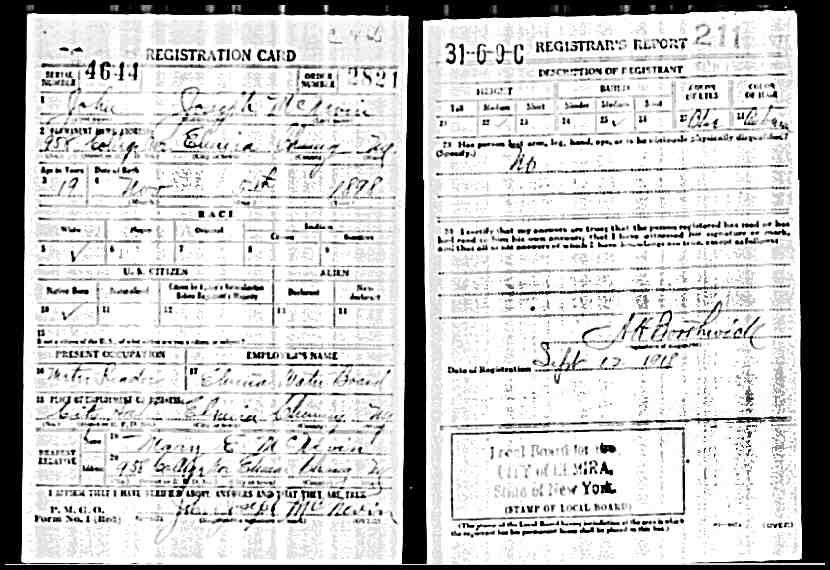 REGISTRATION CARD
SERIAL NUMBER 4644
ORDER NUMBER 2821
1 John Joseph McAlevin
2 PERMANENT HOME ADDRESS
958 College Av Elmira Chemung NY
Age in Years Date of Birth
3 19 4 Nov 1898
RACE
White Negro Oriental Indian
Citizen
5 ✓ 6 7 8 9
U. S. CITIZEN ALIEN
Native Born Naturalized Citizen by Father's Naturalization Before Registrant's Majority Declarant Non-declarant
10 ✓ 11 12 13 14
15
If not a citizen of the U. S., of what nation are you a citizen or subject?
PRESENT OCCUPATION EMPLOYER'S NAME
16 Meter Reader 17 Elmira Water Board
18 PLACE OF EMPLOYMENT OR BUSINESS
City Hall Elmira Chemung NY
NEAREST RELATIVE
Name 19 Mary E
Address 20 958 College Av Elmira Chemung NY
I AFFIRM THAT I HAVE VERIFIED ABOVE ANSWERS AND THAT THEY ARE TRUE
P. M. G. O.
Form No. 1 (Red) John Joseph (OVER)
31-6-9-C REGISTRAR'S REPORT 211
DESCRIPTION OF REGISTRANT
HEIGHT BUILD COLOR OF EYES COLOR OF HAIR
Tall Medium Short Slender Medium Stout
21 22 ✓ 23 24 25 ✓ 26 27 28
29 Has person lost arm, leg, hand, eye, or is he obviously physically disqualified?
(Specify.)
No
30 I certify that my answers are true; that the person registered has read or has
had read to him his own answers; that I have witnessed his signature or mark,
and that all of his answers of which I have knowledge are true, except as follows:
Date of Registration Sept 12 1918
Local Board for the
CITY of ELMIRA,
State of New York.
(STAMP OF LOCAL BOARD)
(The stamp of the Local Board having jurisdiction of the area in which
the registrant has his permanent home shall be placed in this box.)
(OVER)